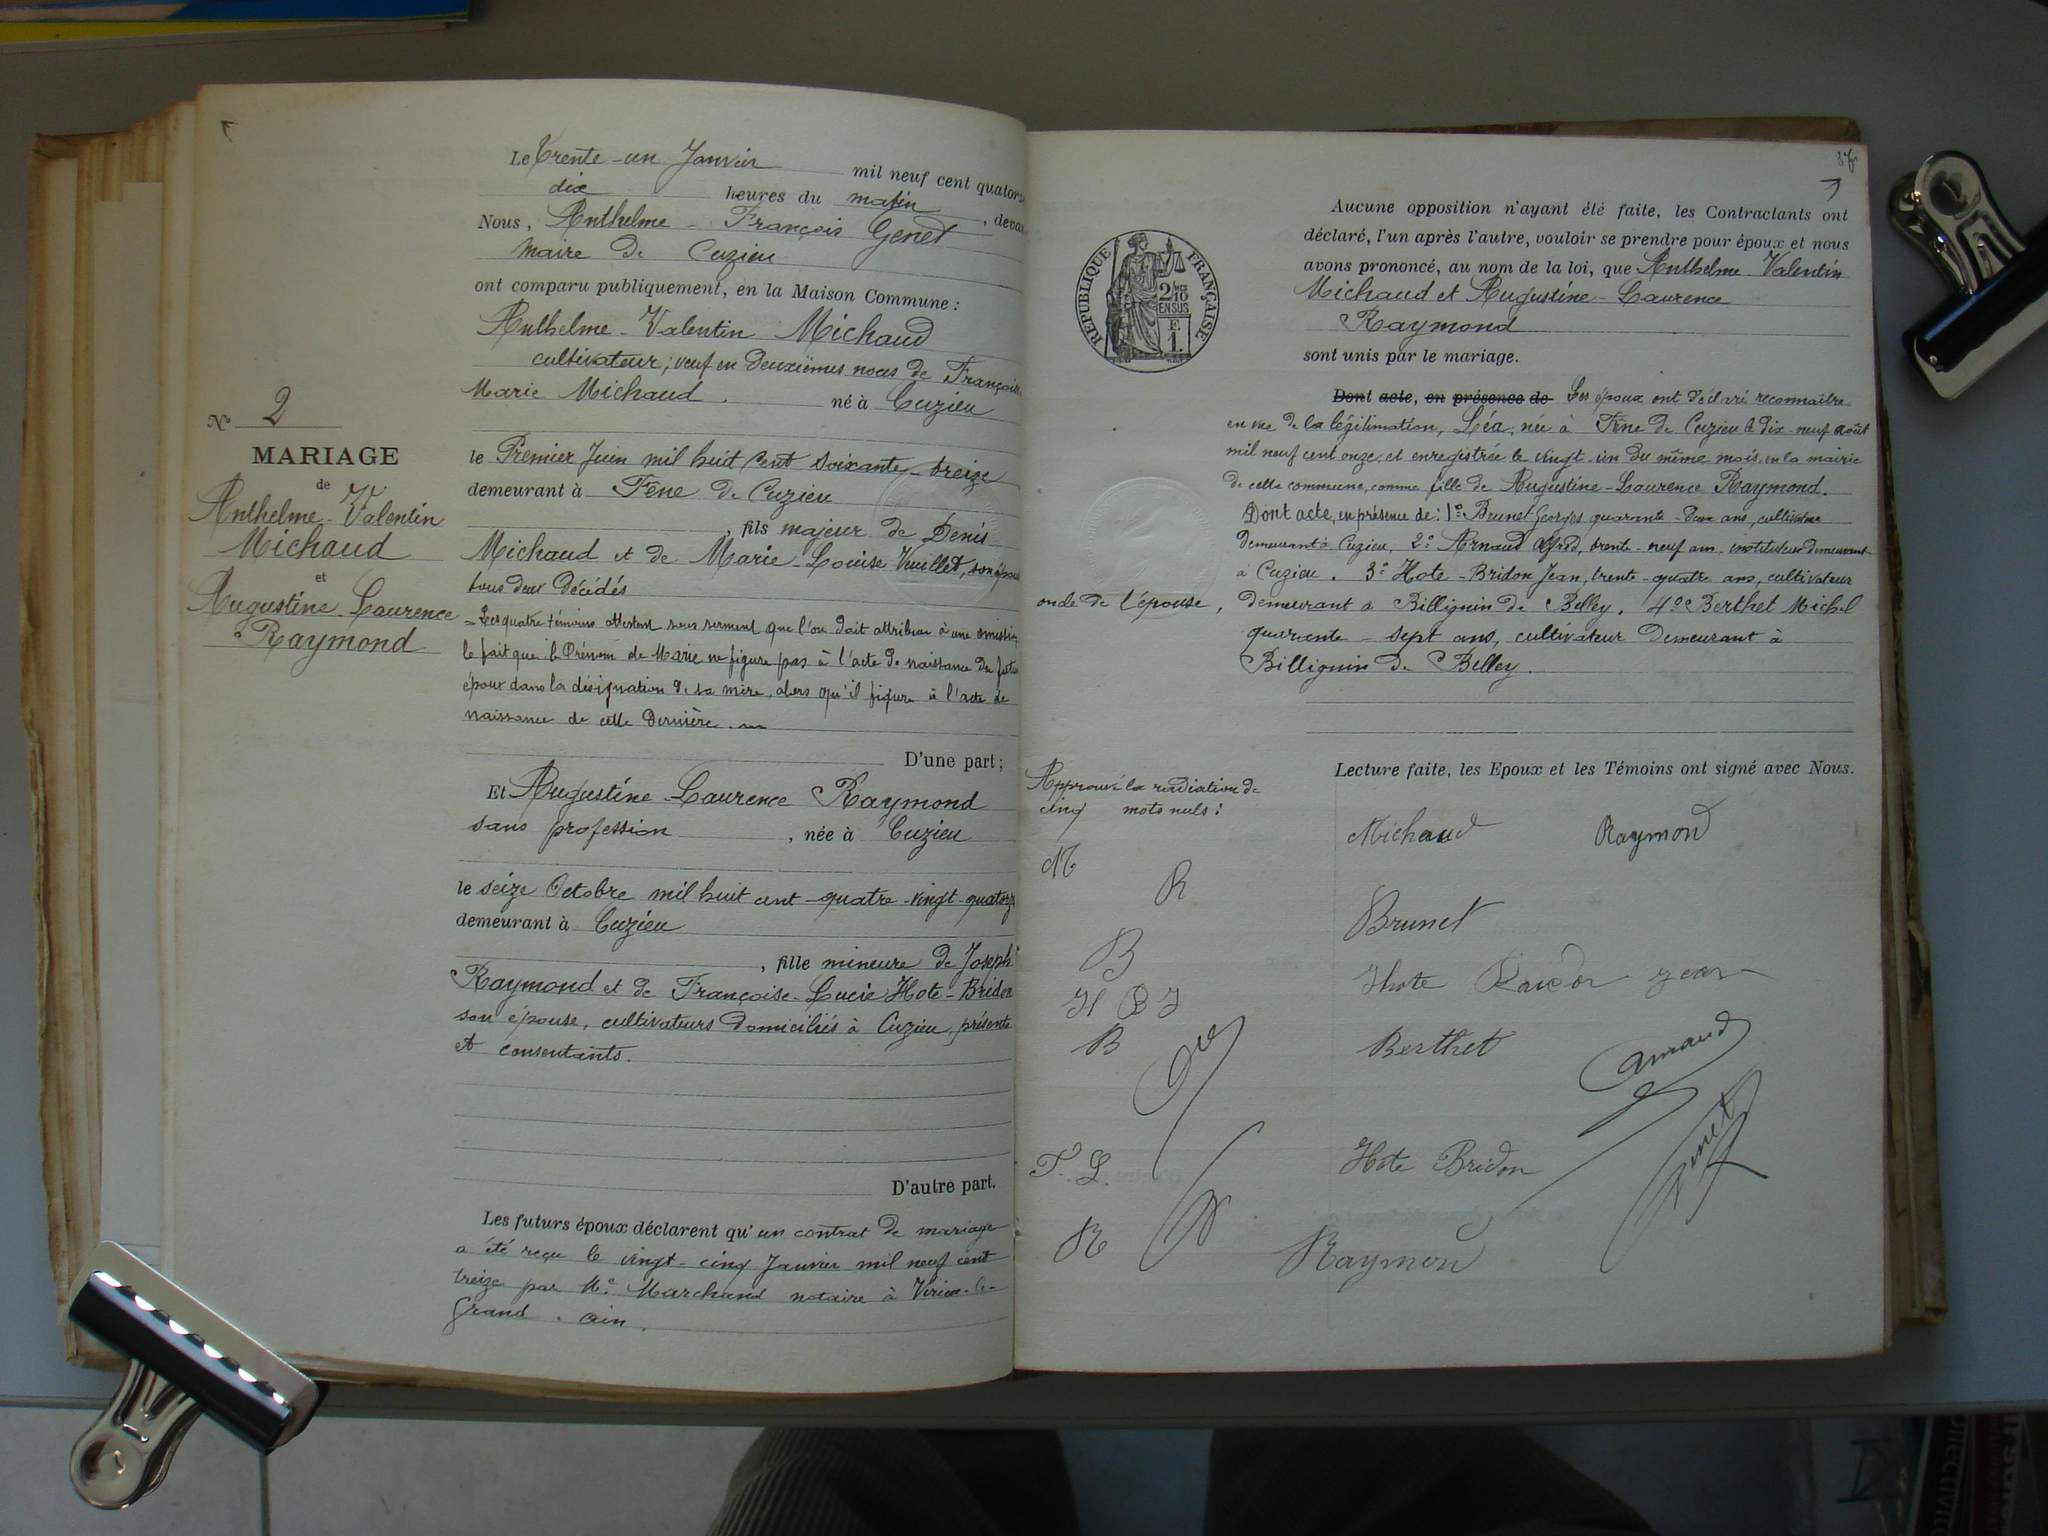 Le Trente-un Janvier mil neuf cent quator
dix heures du matin, devan
Nous, Anthelme-François Genet
Maire de Cuzieu
ont comparu publiquement, en la Maison Commune :
Anthelme-Valentin Michaud
cultivateur; veuf en deuxièmes noces de Françoise
Marie Michaud. né à Cuzieu
le Premier Juin mil huit cent soixante-treize
demeurant à Fene de Cuzieu
, fils majeur de Denis
Michaud et de Marie-Louise Vuillet, son épouse
tous deux décédés
- Les quatre témoins attestent sous serment que l'on doit attribuer à une omission
le fait que le Prénom de Marie ne figure pas à l'acte de naissance du futur
époux dans la désignation de sa mère, alors qu'il figure à l'acte de
naissance de cette dernière.
D'une part ;
Et Augustine-Laurence Raymond
sans profession, née à Cuzieu
le seize Octobre mil huit cent-quatre-vingt-quatorze
demeurant à Cuzieu
, fille mineure de Joseph
Raymond et de Françoise-Lucie Hote-Bridon
son épouse, cultivateurs domiciliés à Cuzieu, présents
et consentants.
D'autre part.
Les futurs époux déclarent qu'un contrat de mariage
a été reçu le vingt-cinq Janvier mil neuf cent
treize par Me Marchand notaire à Virieu-le-
Grand. Ain.
No 2
MARIAGE
de
Anthelme-Valentin
Michaud
et
Augustine-Laurence
Raymond
RÉPUBLIQUE FRANÇAISE
2/10
EN SUS
F.
1.
Aucune opposition n'ayant été faite, les Contractants ont
déclaré, l'un après l'autre, vouloir se prendre pour époux et nous
avons prononcé, au nom de la loi, que Anthelme Valentin
Michaud et Augustine-Laurence
Raymond
sont unis par le mariage.
Dont acte, en présence de Les époux ont déclaré reconnaître
en vue de la légitimation, Léa, née à Fene de Cuzieu le dix-neuf août
mil neuf cent onze et enregistrée le vingt-un du même mois, en la mairie
de cette commune, comme fille de Augustine-Laurence Raymond.
Dont acte, en présence de : 1° Brunet Georges quarante-deux ans, cultivateur
demeurant à Cuzieu, 2° Arnaud Alfred, trente-neuf ans instituteur demeurant
à Cuzieu. 3° Hote-Bridon Jean, trente-quatre ans, cultivateur
oncle de l'épouse, demeurant à Billignin de Belley. 4° Berthet Michel
quarante-sept ans, cultivateur demeurant à
Billignin de Belley.
Lecture faite, les Epoux et les Témoins ont signé avec Nous.
Approuvé la radiation de
cinq mots nuls :
Michaud Raymond
M
R
Brunet
B
Hote Bridon jean
H B J
Berthet Arnaud
B
Hote Bridon Genet
F. L.
R
Raymond